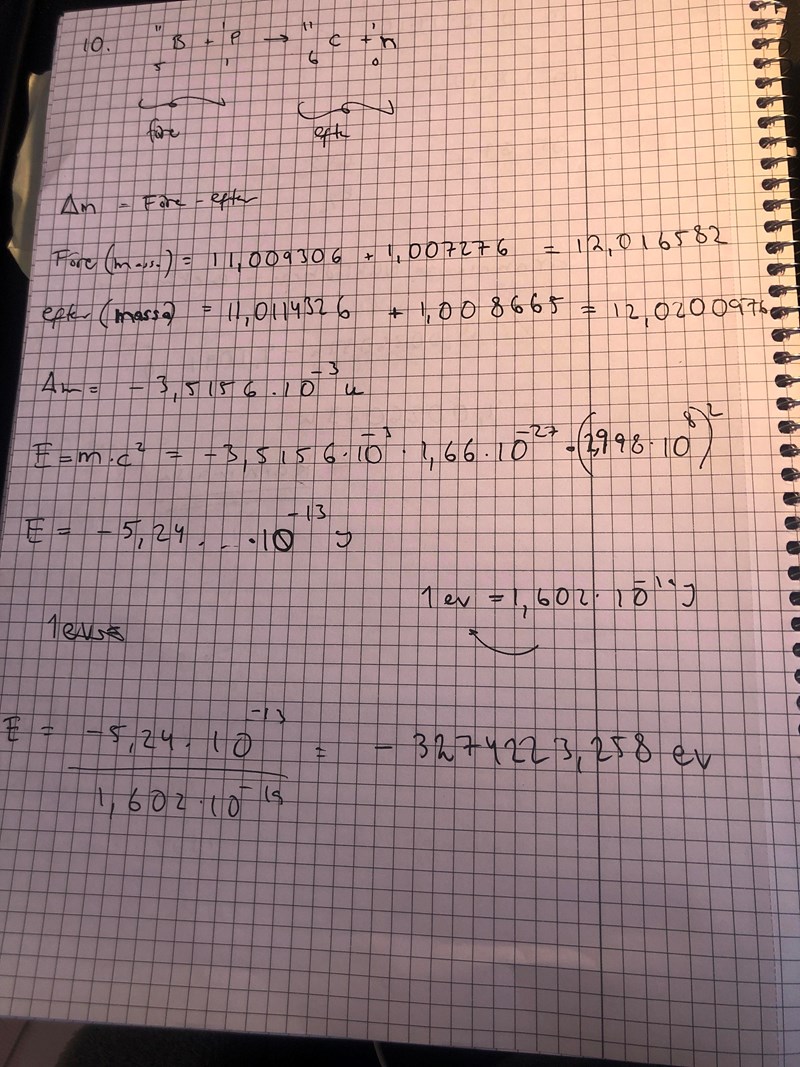 10. ¹¹₅B + ¹₁P → ¹¹₆C + ¹₀n
före efter
Δm = Före - efter
Före (massa) = 11,009306 + 1,007276 = 12,016582
efter (massa) = 11,0114326 + 1,008665 = 12,0200976
Δm = -3,5156·10⁻³ u
E = m·c² = -3,5156·10⁻³ · 1,66·10⁻²⁷ · (2,998·10⁸)²
E = -5,24...·10⁻¹³ J
1 ev = 1,602·10⁻¹⁹ J
1 ev =
E = -5,24·10⁻¹³ / 1,602·10⁻¹⁹ = -3274223,258 ev